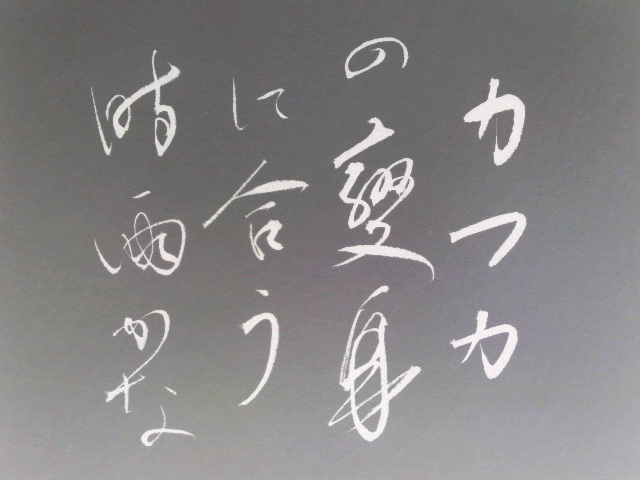 カフカ
の變身
に合う
時雨かな